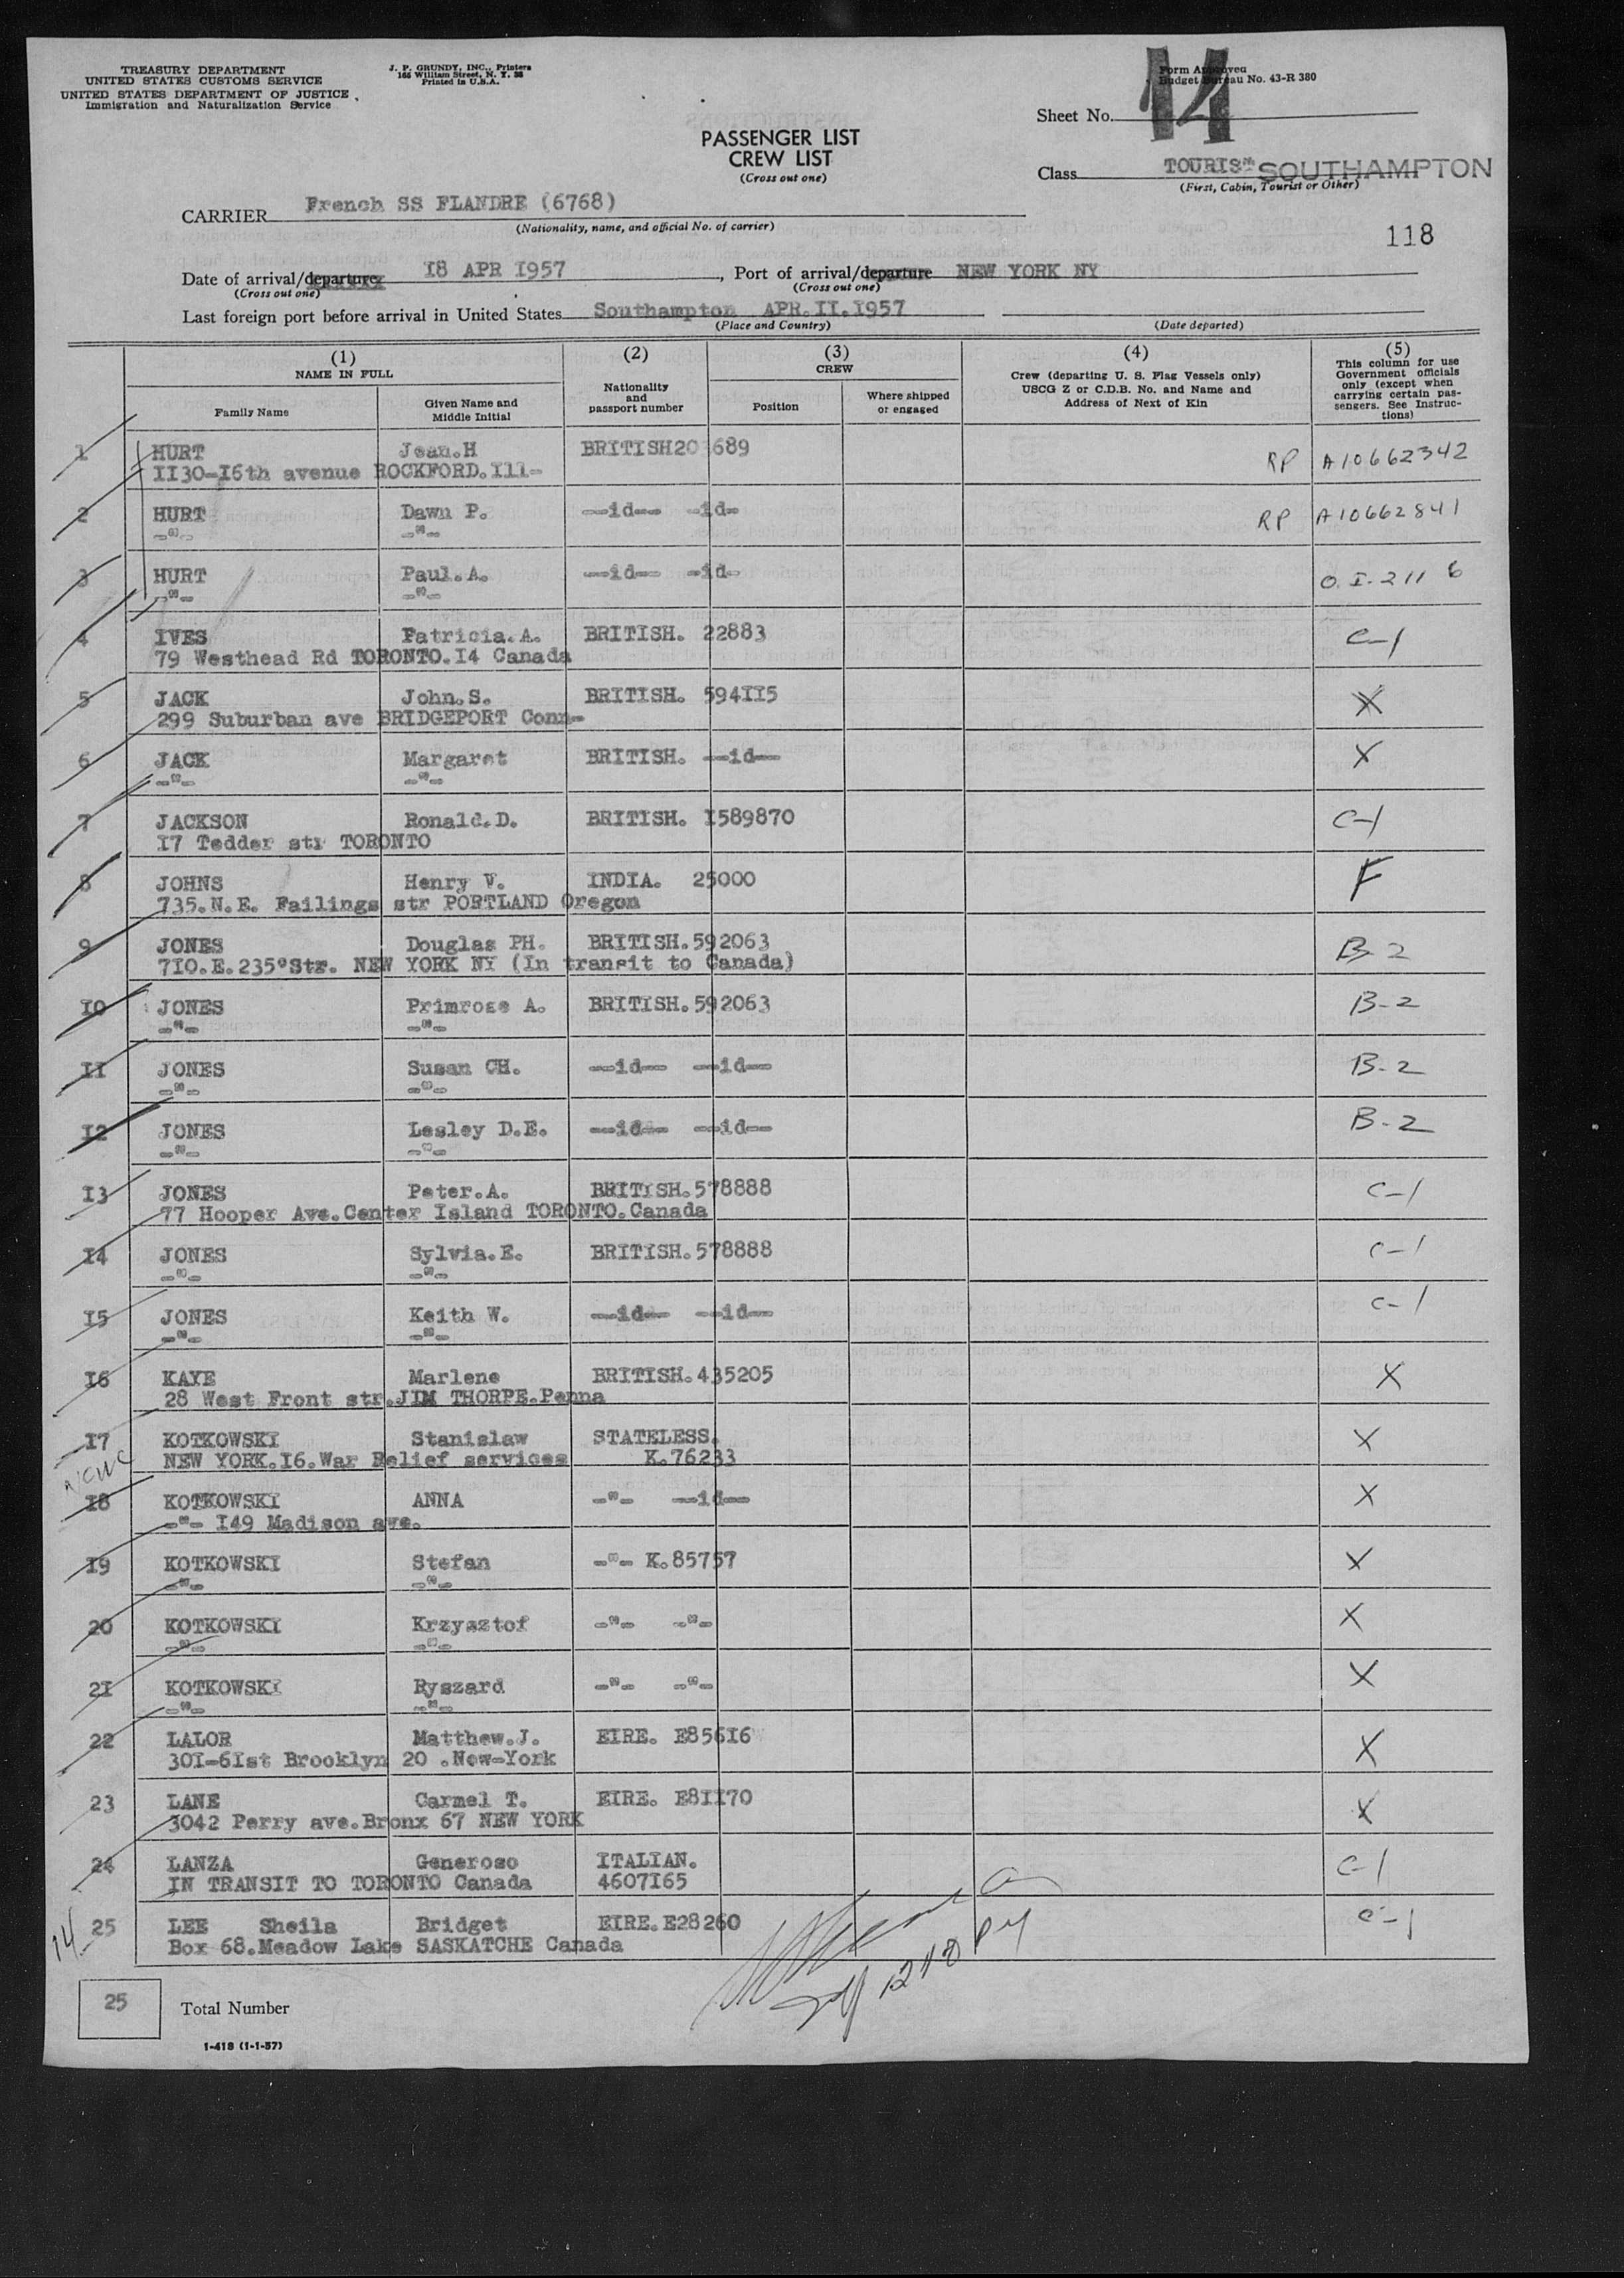 TREASURY DEPARTMENT
UNITED STATES CUSTOMS SERVICE
UNITED STATES DEPARTMENT OF JUSTICE
Immigration and Naturalization Service
J. P. GRUNDY, INC., Printers
165 William Street, N. Y. 38
Printed in U.S.A.
Form Approved
Budget Bureau No. 43-R 380
Sheet No. 14
PASSENGER LIST
CREW LIST
(Cross out one)
Class TOURIS SOUTHAMPTON
(First, Cabin, Tourist or Other)
CARRIER French SS FLANDRE (6768)
(Nationality, name, and official No. of carrier)
118
Date of arrival/departure I8 APR I957, Port of arrival/departure NEW YORK NY
(Cross out one) (Cross out one)
Last foreign port before arrival in United States Southampton APR.II.I957
(Place and Country) (Date departed)
(1) NAME IN FULL
Family Name
Given Name and Middle Initial
(2) Nationality and passport number
(3) CREW
Position
Where shipped or engaged
(4) Crew (departing U. S. Flag Vessels only) USCG Z or C.D.B. No. and Name and Address of Next of Kin
(5) This column for use Government officials only (except when carrying certain passengers. See Instructions)
1 HURT Jean.H BRITISH20 689 RP A10662342
II30-I6th avenue ROCKFORD.Ill-
2 HURT Dawn P. --id-- -id- RP A10662841
-"- -"-
3 HURT Paul.A. --id-- -id- O.I-211 6
-"- -"-
4 IVES Patricia.A. BRITISH. 22883 C-1
79 Westhead Rd TORONTO.I4 Canada
5 JACK John.S. BRITISH. 594II5 X
299 Suburban ave BRIDGEPORT Conn-
6 JACK Margaret BRITISH. --id-- X
-"- -"-
7 JACKSON Ronald.D. BRITISH. I589870 C-1
I7 Tedder str TORONTO
8 JOHNS Henry V. INDIA. 25000 F
735.N.E. Failings str PORTLAND Oregon
9 JONES Douglas PH. BRITISH.592063 B-2
7I0.E.235°Str. NEW YORK NY (In transit to Canada)
I0 JONES Primrose A. BRITISH.592063 B-2
-"- -"-
II JONES Susan CH. --id-- --id-- B-2
-"- -"-
I2 JONES Lesley D.E. --id-- --id-- B-2
-"- -"-
I3 JONES Peter.A. BRITISH.578888 C-1
77 Hooper Ave.Center Island TORONTO.Canada
I4 JONES Sylvia.E. BRITISH.578888 C-1
-"- -"-
I5 JONES Keith W. --id-- --id-- C-1
-"- -"-
I6 KAYE Marlene BRITISH.435205 X
28 West Front str.JIM THORPE.Penna
I7 KOTKOWSKI Stanislaw STATELESS. X
NEW YORK.I6.War Relief services K.76233
NCWC
I8 KOTKOWSKI ANNA -"- --id-- X
-"- I49 Madison ave.
I9 KOTKOWSKI Stefan -"- K.85757 X
-"- -"-
20 KOTKOWSKI Krzysztof -"- -"- X
-"- -"-
2I KOTKOWSKI Ryszard -"- -"- X
-"- -"-
22 LALOR Matthew.J. EIRE. E856I6 X
30I-6Ist Brooklyn 20 .New-York
23 LANE Carmel T. EIRE. E8II70 X
3042 Perry ave.Bronx 67 NEW YORK
24 LANZA Generoso ITALIAN. C-1
IN TRANSIT TO TORONTO Canada 4607I65
25 LEE Sheila Bridget EIRE.E28260 C-1
Box 68.Meadow Lake SASKATCHE Canada
14
25 Total Number
I-418 (1-1-57)